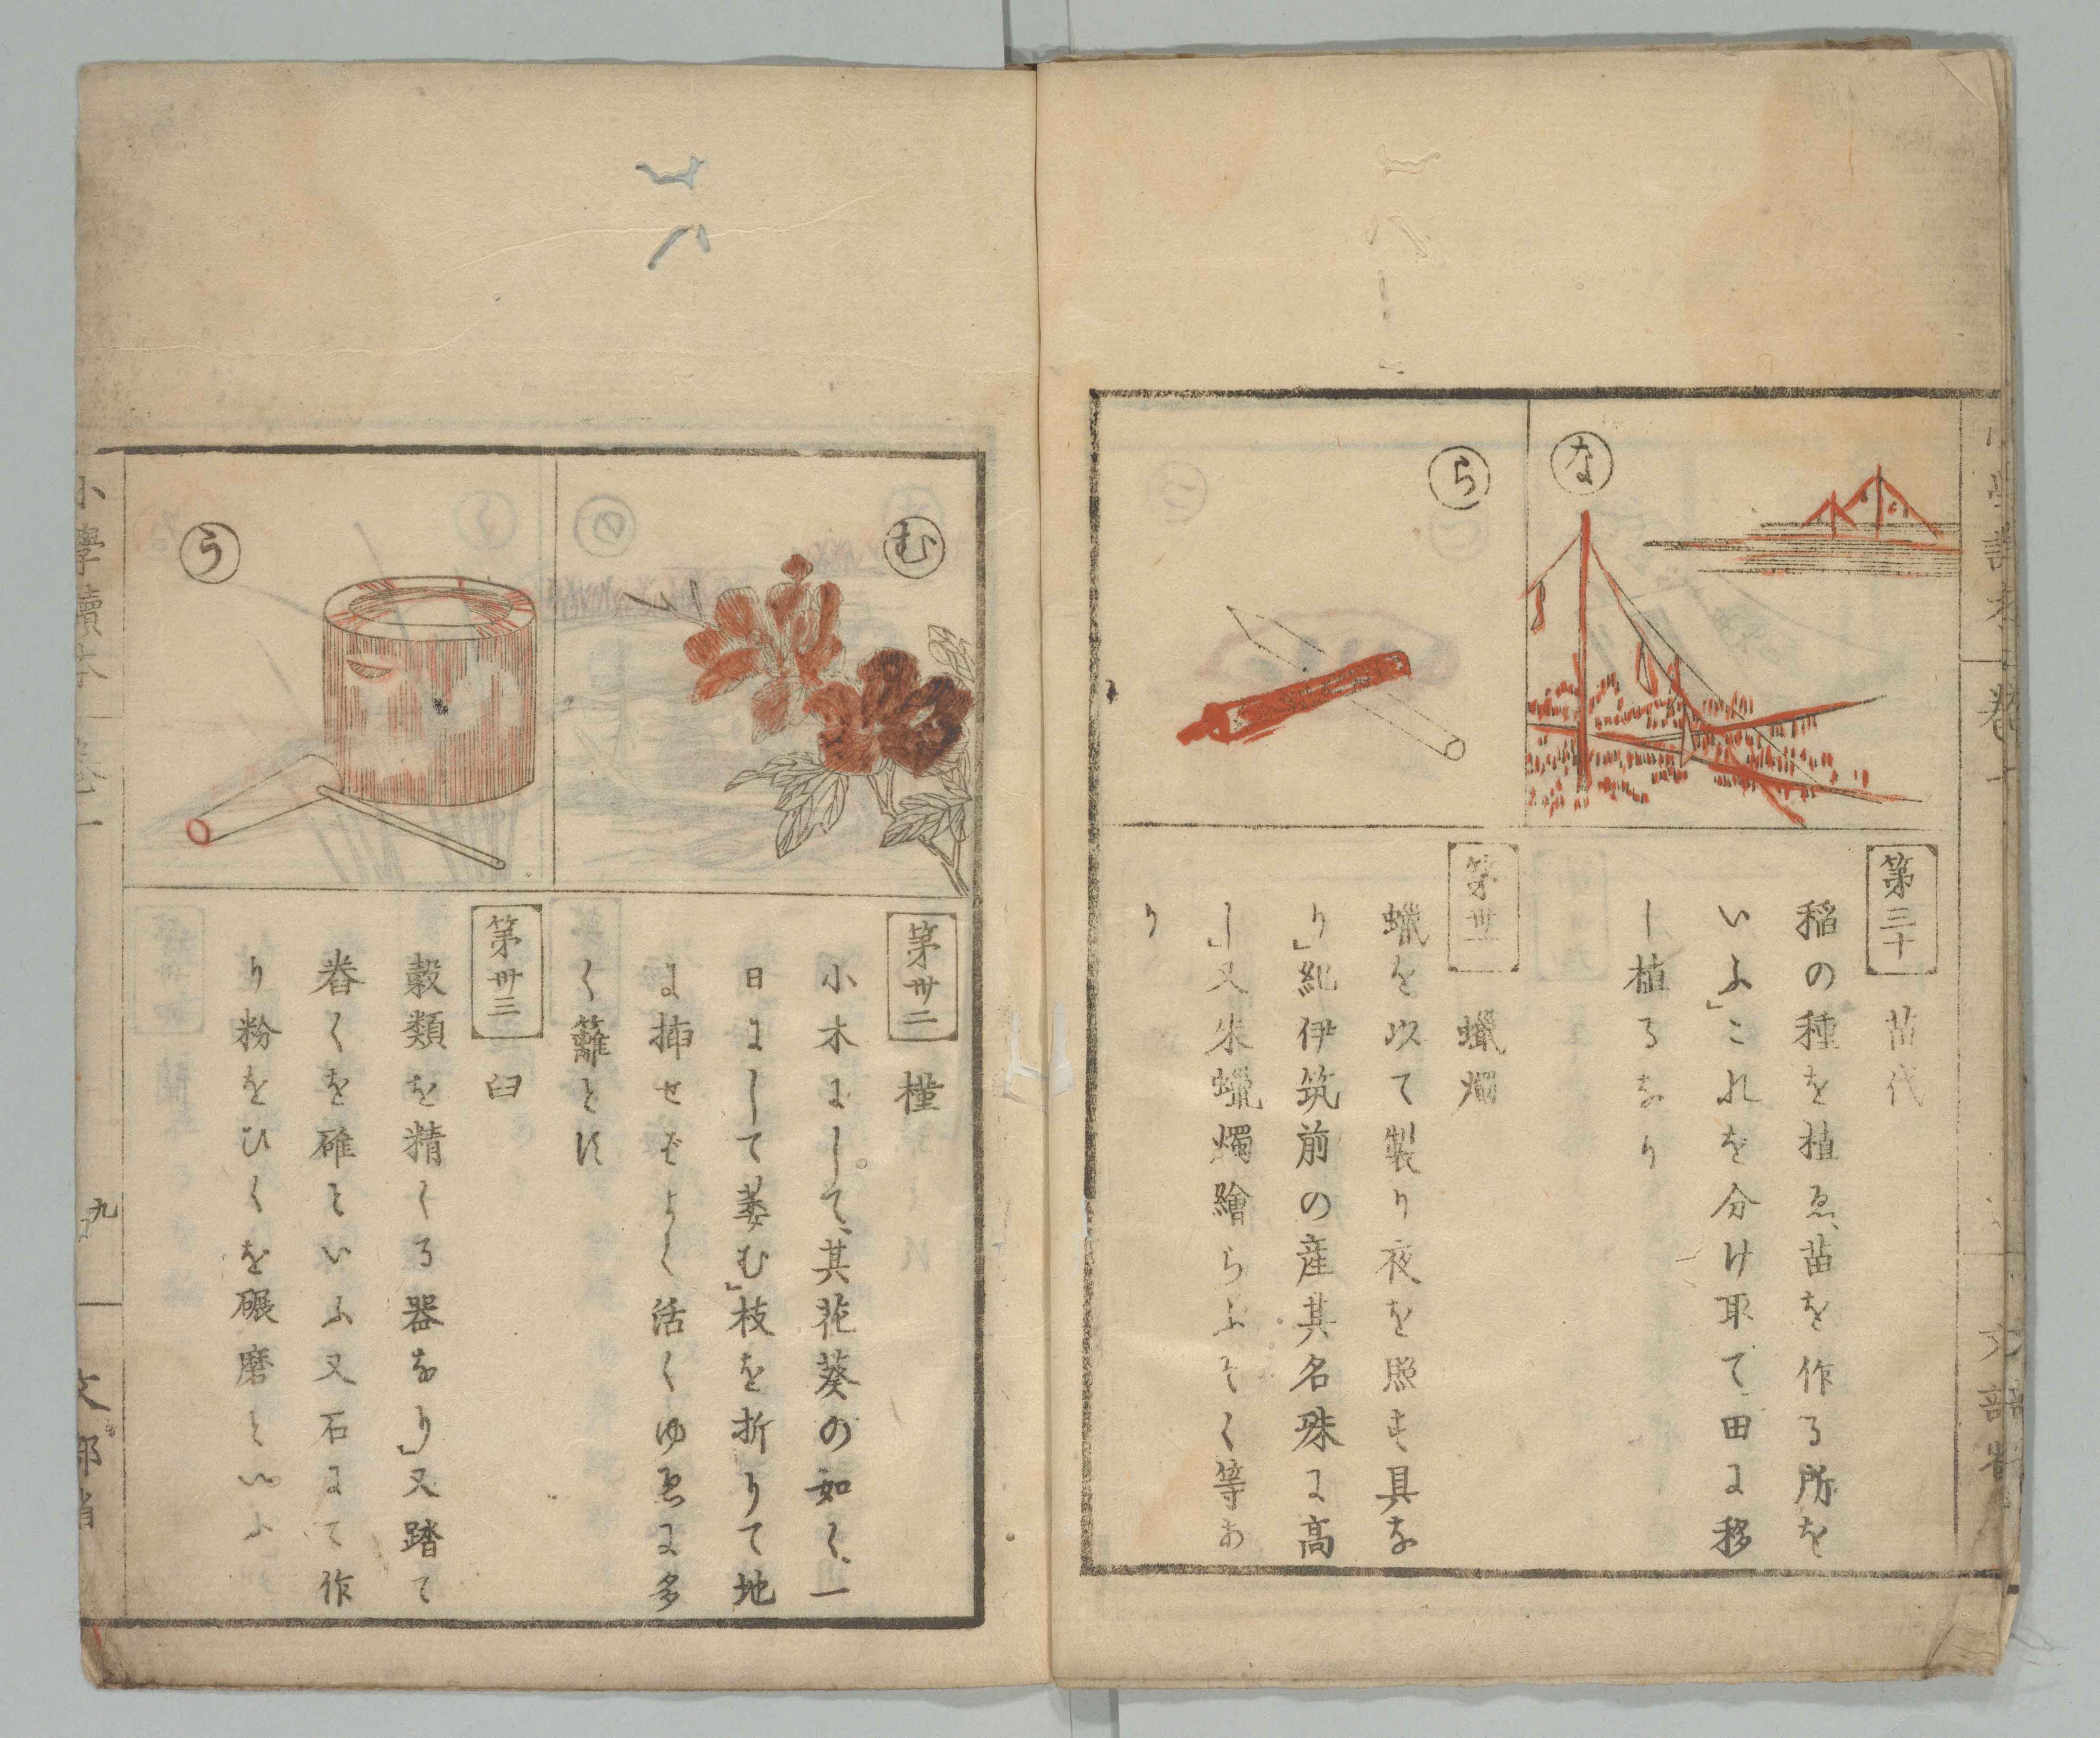 な
第三十 苗代
稲の種を植ゑ、苗を作る所を
いふ」これを分け取て田に移
し植るなり
ら
第卅一 蠟燭
蠟を以て製り夜を照す具な
り」紀伊筑前の産其名殊に高
し」又朱蠟燭繪らふそく等あ
り
む
第卅二 槿
小木にして、其花葵の如く、一
日にして萎む」枝を折りて地
に挿せばよく活くゆゑに多
く籬とす
う
第卅三 臼
穀類を精くる器なり」又踏て
舂くを碓といふ又石にて作
り粉をひくを碾磨といふ
小學讀本
九
文部省